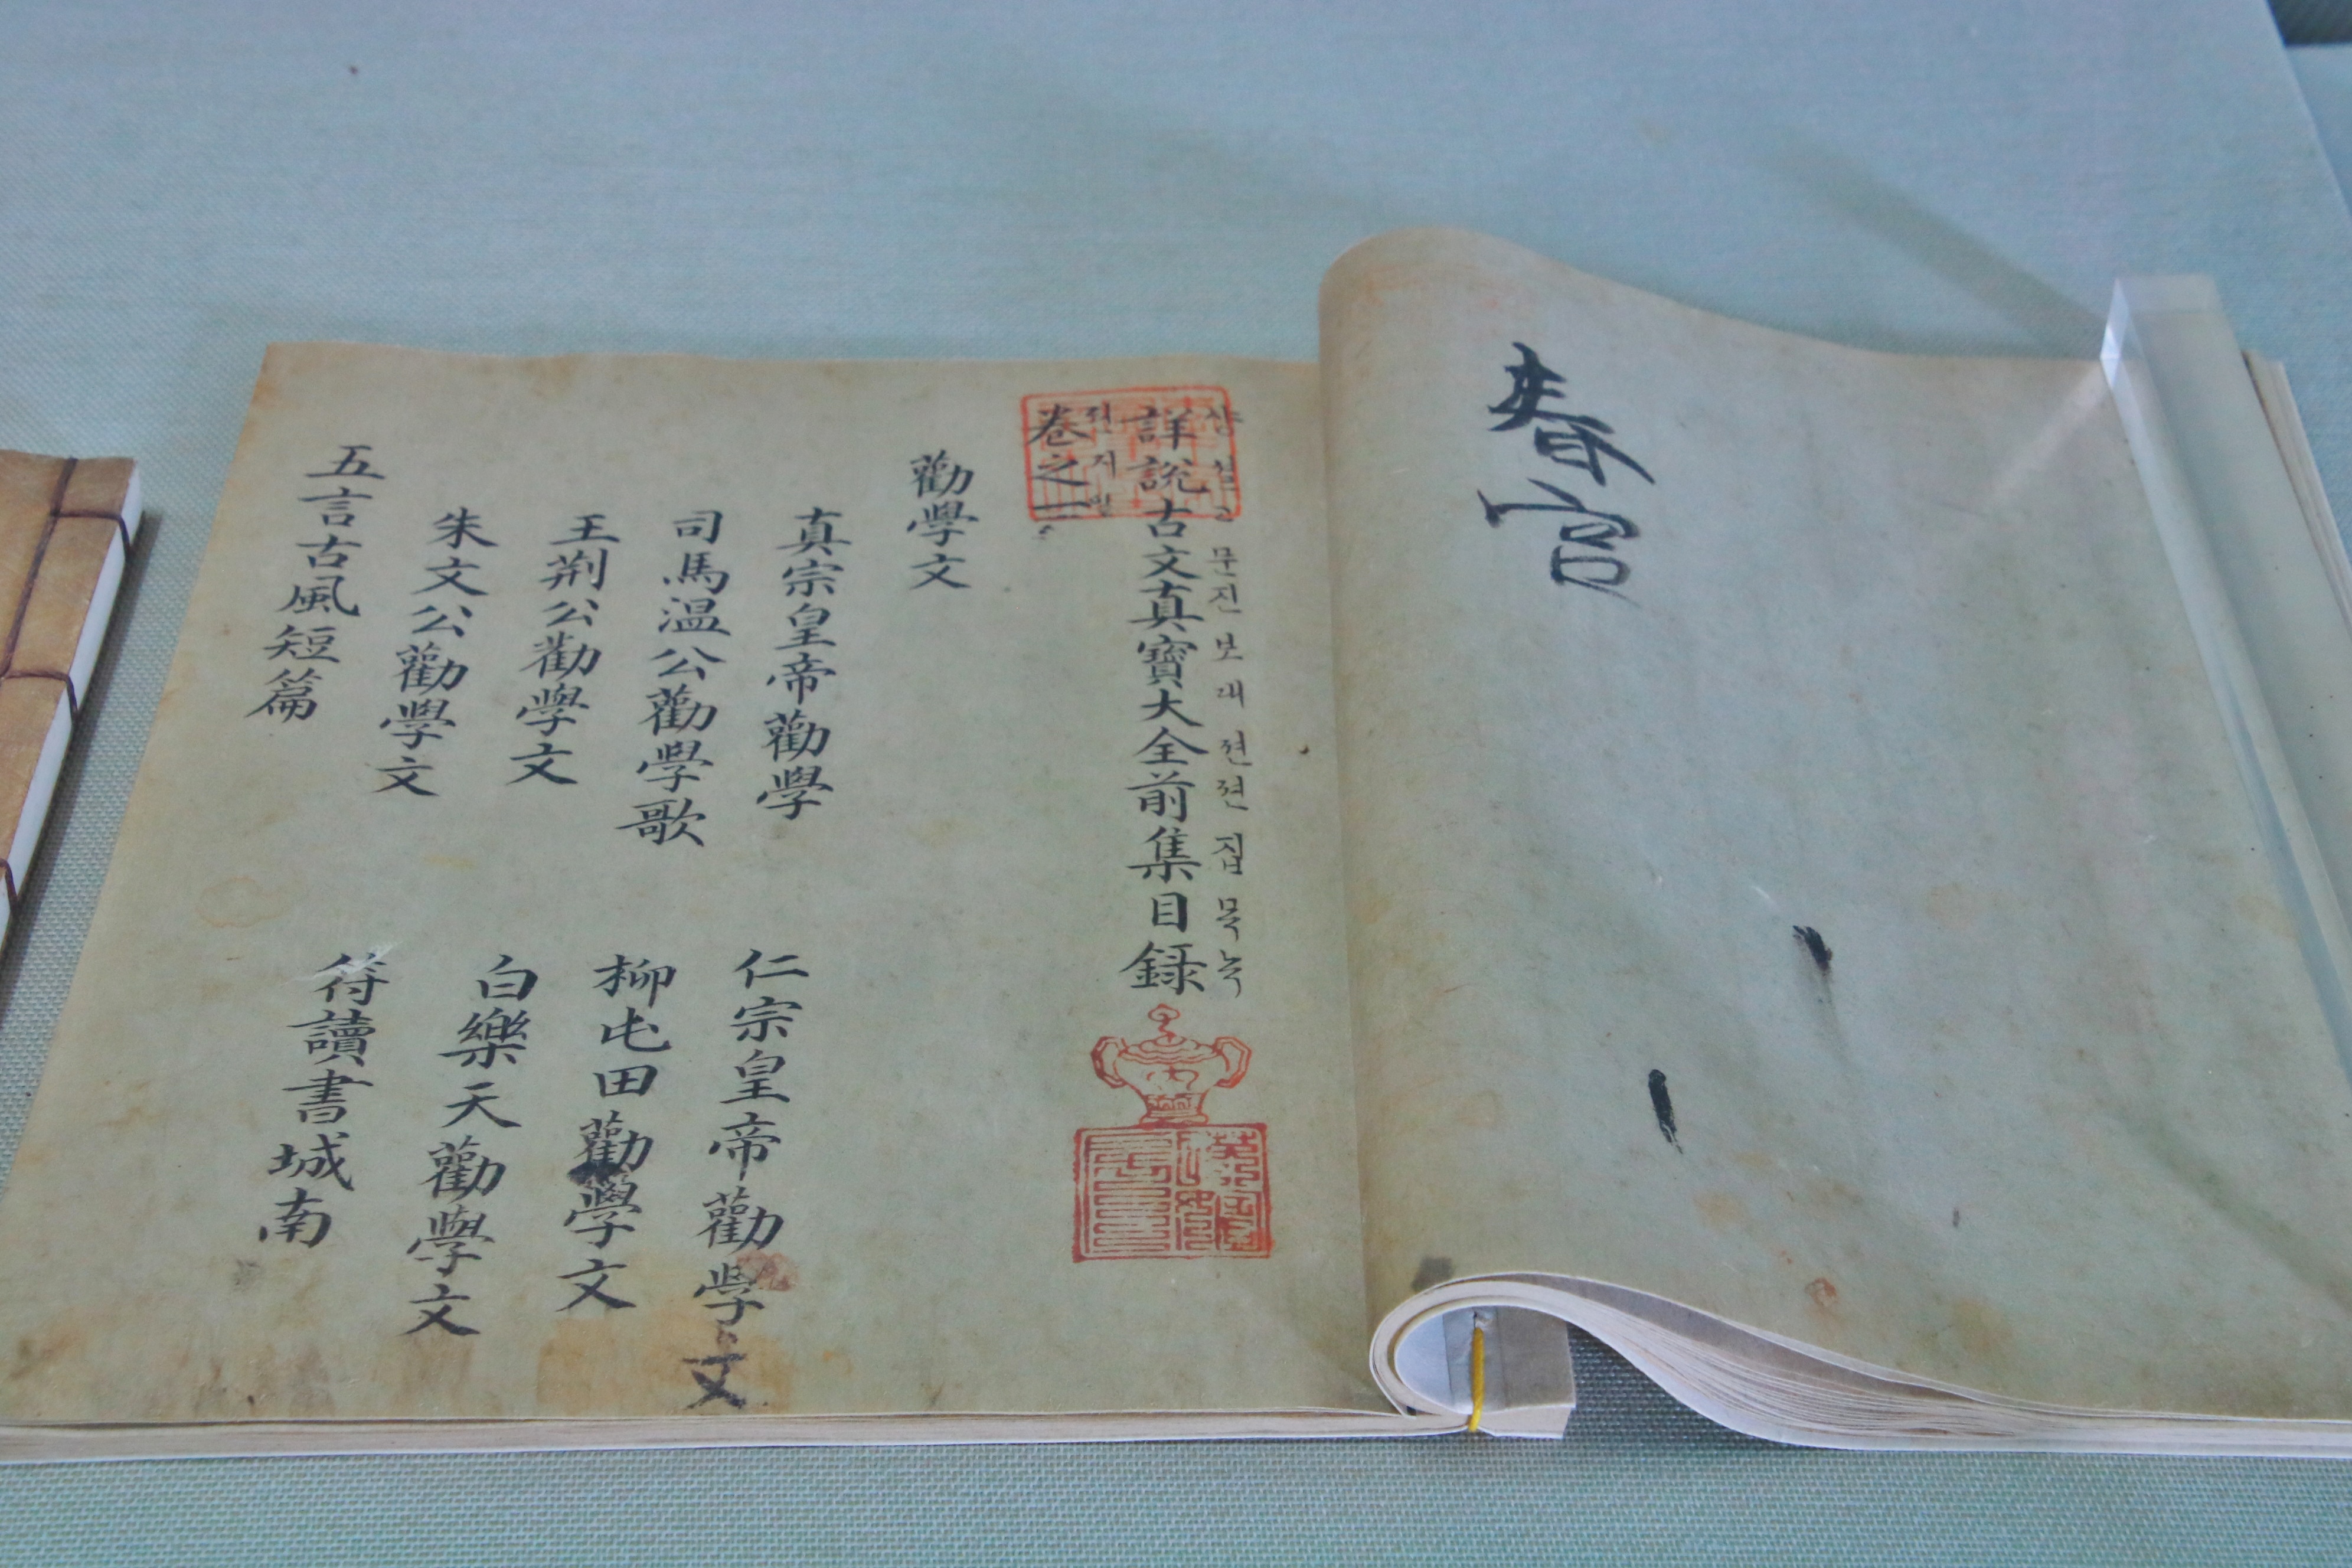 春官
샹셜고문진보대젼젼집목녹
詳說古文真寶大全前集目録
권지일
卷之一
勸學文
真宗皇帝勸學
仁宗皇帝勸學文
司馬温公勸學歌
柳屯田勸學文
王荆公勸學文
白樂天勸學文
朱文公勸學文
符讀書城南
五言古風短篇